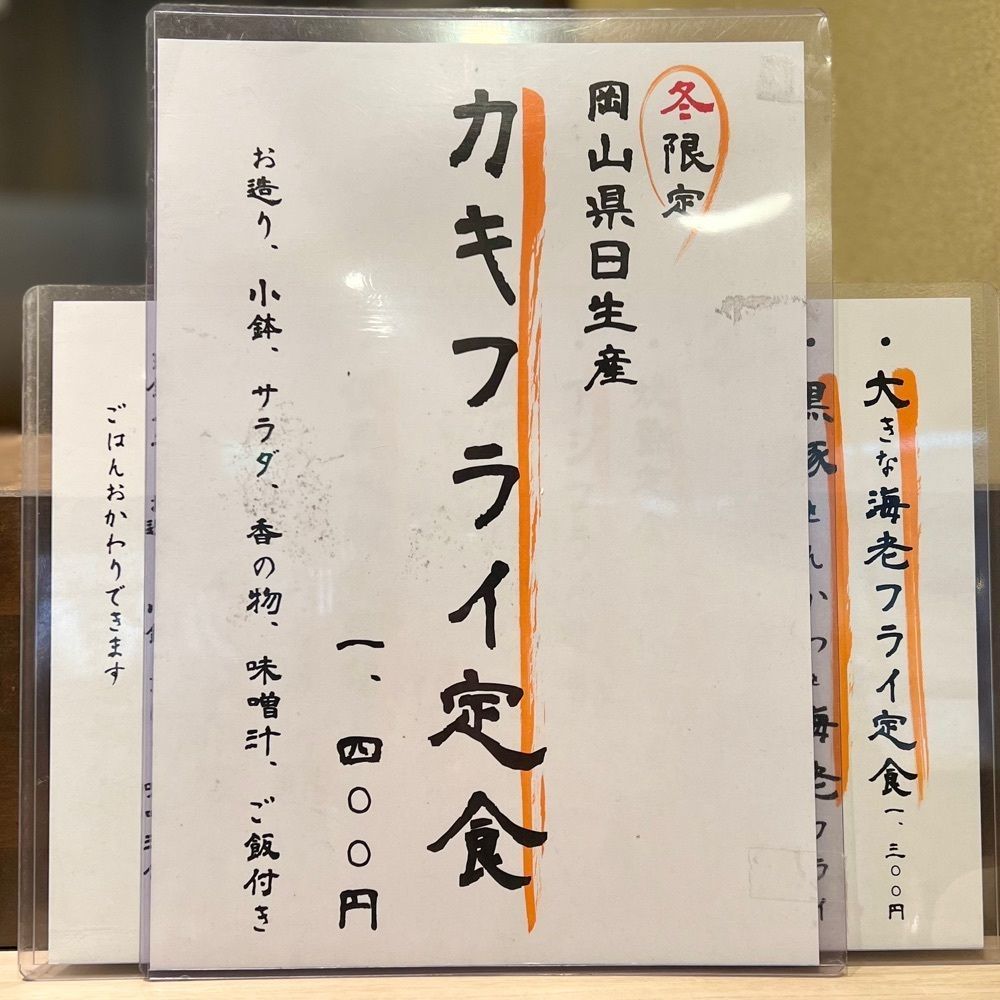 冬限定
岡山県日生産
カキフライ定食
一、四〇〇円
お造り、小鉢、サラダ、香の物、味噌汁、ご飯付き
・大きな海老フライ定食 一、三〇〇円
・黒豚とんかつと海老フライ
ごはんおかわりできます